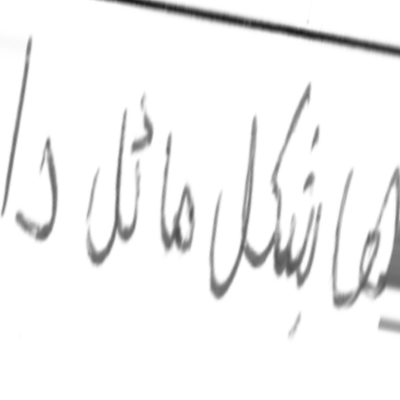 ها بشكل مائل دا